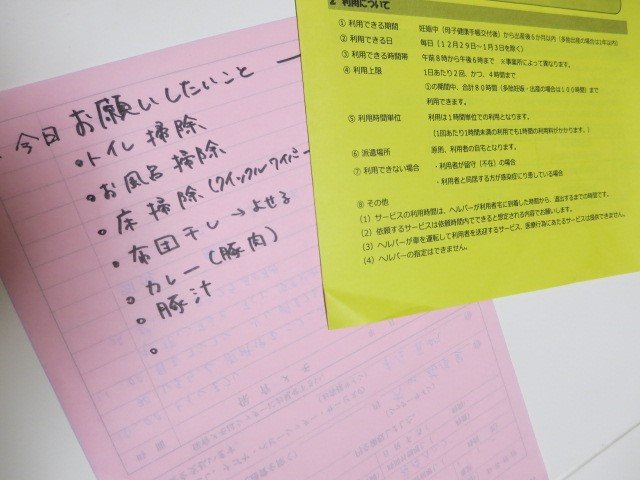 今日 お願いしたいこと
・トイレ掃除
・お風呂掃除
・床掃除(クイックルワイパー
・布団干し→よせる
・カレー(豚肉)
・豚汁
・
2 利用について
① 利用できる期間 妊娠中(母子健康手帳交付後)から出産後6か月以内(多胎出産の場合は1年以内)
② 利用できる日 毎日(12月29日~1月3日を除く)
③ 利用できる時間帯 午前8時から午後6時まで ※事業所によって異なります。
④ 利用上限 1日あたり2回、かつ、4時間まで
①の期間中、合計80時間(多胎妊娠・出産の場合は100時間)まで
利用できます。
⑤ 利用時間単位 利用は1時間単位での利用となります。
(1回あたり1時間未満の利用でも1時間の利用料がかかります。)
⑥ 派遣場所 原則、利用者の自宅となります。
⑦ 利用できない場合 ・利用者が留守(不在)の場合
・利用者と同居する方が感染症にり患している場合
⑧ その他
(1)サービスの利用時間は、ヘルパーが利用者宅に到着した時間から、退出するまでの時間です。
(2)依頼するサービスは依頼時間内でできると想定される内容でお願いします。
(3)ヘルパーが車を運転して利用者を送迎するサービス、医療行為にあたるサービスは提供できません。
(4)ヘルパーの指定はできません。